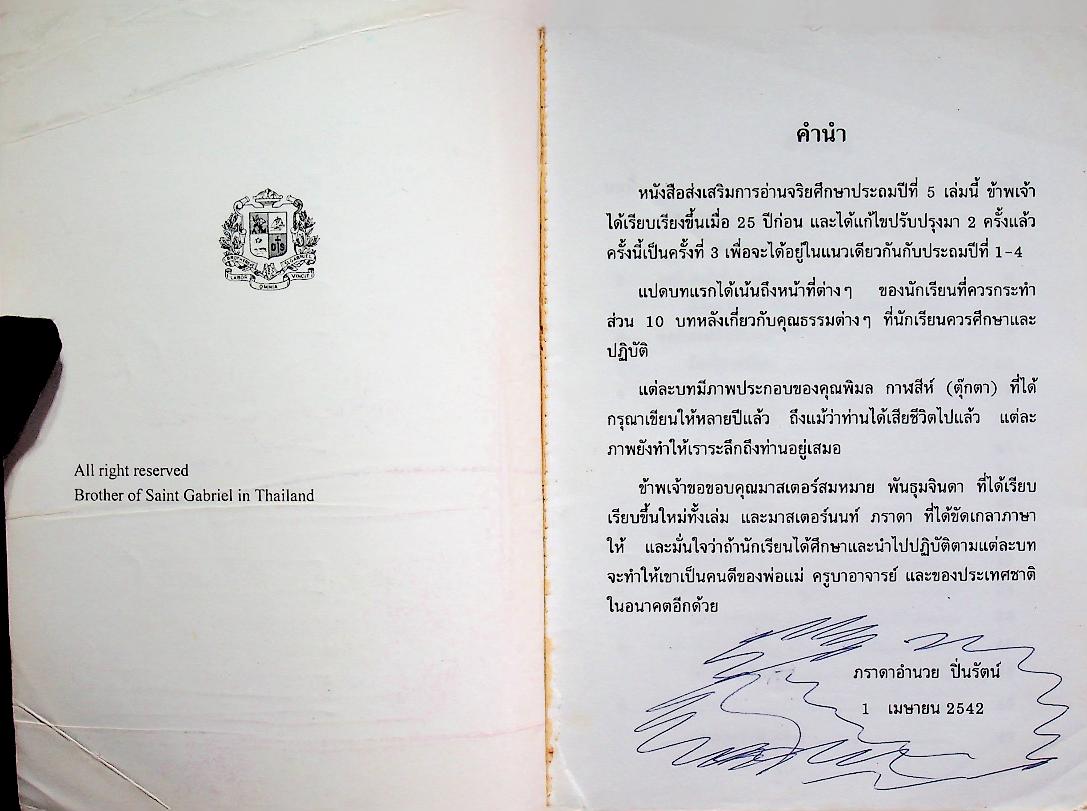 LABOR OMNIA VINCIT
All right reserved
Brother of Saint Gabriel in Thailand
คำนำ
หนังสือส่งเสริมการอ่านจริยศึกษาประถมปีที่ 5 เล่มนี้ ข้าพเจ้า
ได้เรียบเรียงขึ้นเมื่อ 25 ปีก่อน และได้แก้ไขปรับปรุงมา 2 ครั้งแล้ว
ครั้งนี้เป็นครั้งที่ 3 เพื่อจะได้อยู่ในแนวเดียวกันกับประถมปีที่ 1-4
แปดบทแรกได้เน้นถึงหน้าที่ต่างๆ ของนักเรียนที่ควรกระทำ
ส่วน 10 บทหลังเกี่ยวกับคุณธรรมต่างๆ ที่นักเรียนควรศึกษาและ
ปฏิบัติ
แต่ละบทมีภาพประกอบของคุณพิมล กาฬสีห์ (ตุ๊กตา) ที่ได้
กรุณาเขียนให้หลายปีแล้ว ถึงแม้ว่าท่านได้เสียชีวิตไปแล้ว แต่ละ
ภาพยังทำให้เราระลึกถึงท่านอยู่เสมอ
ข้าพเจ้าขอขอบคุณมาสเตอร์สมหมาย พันธุมจินดา ที่ได้เรียบ
เรียบขึ้นใหม่ทั้งเล่ม และมาสเตอร์นนท์ ภราดา ที่ได้ขัดเกลาภาษา
ให้ และมั่นใจว่าถ้านักเรียนได้ศึกษาและนำไปปฏิบัติตามแต่ละบท
จะทำให้เขาเป็นคนดีของพ่อแม่ ครูบาอาจารย์ และของประเทศชาติ
ในอนาคตอีกด้วย
ภราดาอำนวย ปิ่นรัตน์
1 เมษายน 2542